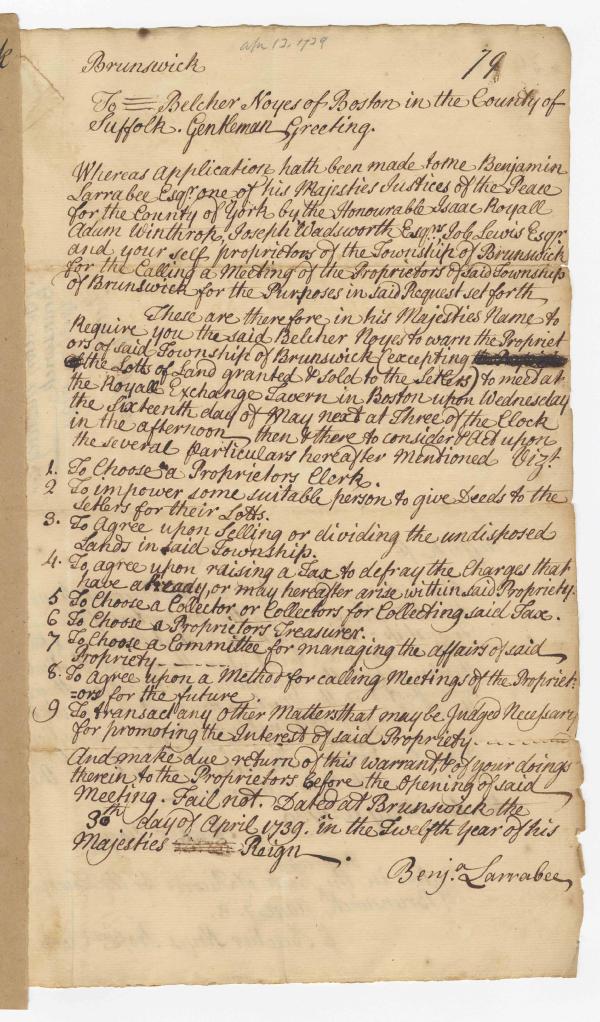 apr 12, 1739
79
Brunswick
To Belcher Noyes of Boston in the County of
Suffolk. Gentleman Greeting.
Whereas application hath been made to me Benjamin
Larrabee Esqr. one of his Majesties Justices of the Peace
for the County of York by the Honourable Isaac Royall
Adam Winthrop, Joseph Wadsworth Esqrs Job Lewis Esqr
and your self, proprietors of the Township of Brunswick
for the Calling a Meeting of the Proprietors of said Township
of Brunswick for the Purposes in said Request set forth
These are therefore in his Majesties Name to
Require you the said Belcher Noyes to warn the Propriet
ors of said Township of Brunswick (excepting
the Lotts of Land granted & sold to the Setlers) to meet at
the Royall Exchange Tavern in Boston upon Wednesday
the Sixteenth day of May next at Three of the Clock
in the afternoon then & there to consider & Act upon
the several particulars hereafter mentioned Vizt.
1. To Choose a Proprietors Clerk.
2 To impower some suitable person to give Deeds to the
Setlers for their Lotts.
3. To Agree upon Selling or dividing the undisposed
Lands in said Township.
4. To agree upon raising a Tax to defray the Charges that
have already, or may hereafter arise within said Propriety.
5 To Choose a Collector or Collectors for Collecting said Tax.
6 To Choose a Proprietors Treasurer.
7 To Choose a Committee for managing the affairs of said
Propriety
8. To Agree upon a Method for calling Meetings of the Propriet=
=ors for the future.
9 To transact any other Matters that may be Judged Necessary
for promoting the Interest of said Propriety
And make due return of this warrant, & of your doings
therein to the Proprietors before the Opening of said
Meeting. Fail not. Dated at Brunswick the
day of April 1739. in the Twelfth Year of his
Majesties Reign.
Benja. Larrabee